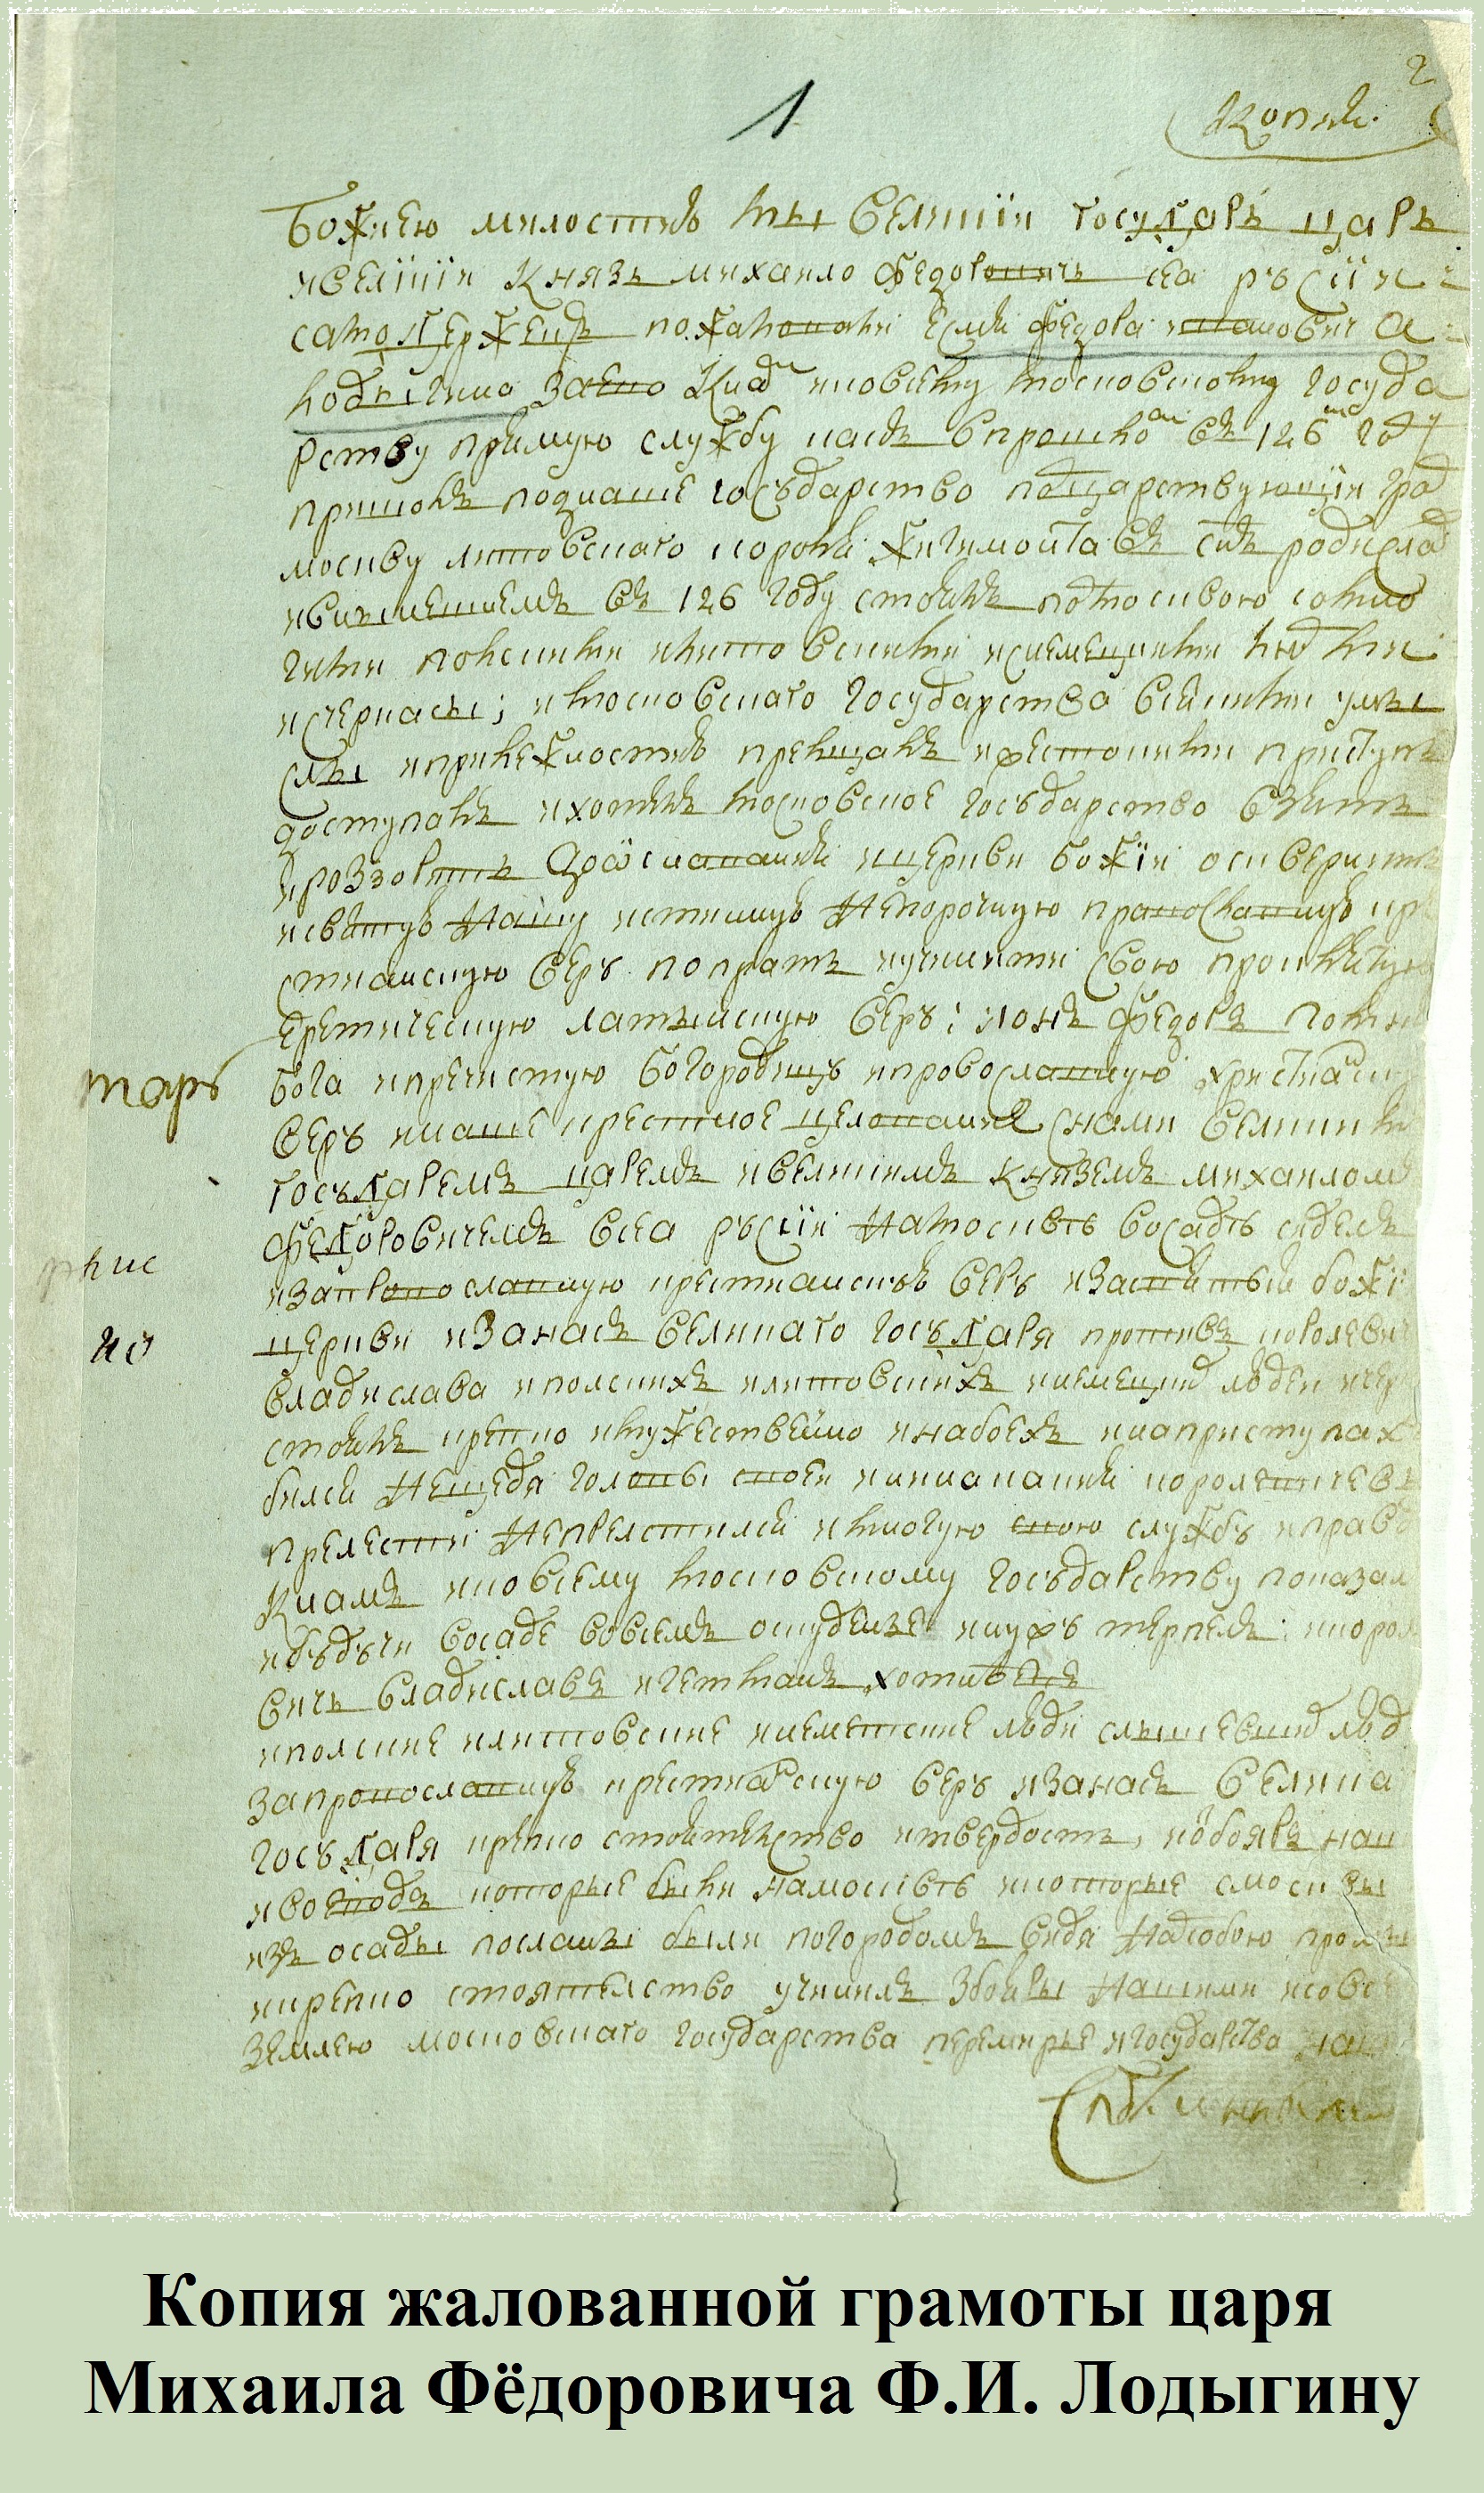 1
2
Копия.
Божиею милостию мы великiи государь царь
и великiи князь михаило федоровичь всеа русiи
самодержецъ пожаловали есми федора ивановича
лодыгина за ево к нам и ко всему московскому госуда
рству прямую службу как в прошлом въ 126м году
пришолъ под наше государство под царствующiи град
москву литовскаго короля жигимонта сынъ владислав
и в нынешнемъ въ 126 году стоялъ под москвою со мно
гими польскими и литовскими и с немецкими людми
и с черкасы; и московскаго государства всякими умы
слы и прилежностию прельщалъ и жестокими приступы
доступалъ и хотелъ московское государство взять
и раззорить до основания и церкви божiи осквернить
и святую нашу истинную непорочную православную кре
стиянскую веру попрать и учинити свою проклятую
еретическую латынскую веру; и онъ федоръ помня
бога и пречистую богородицу и православную христианску
веру и наше крестное целование с нами великим
государемъ царемъ и великимъ князем михаиломъ
федоровичемъ всеа русiи на москве в осаде сиделъ
и за православную крестианскую веру и за святыя божiи
церкви и за насъ великаго государя противъ королевича
владислава и польскихъ и литовскихъ и немецких людей и чер
стоялъ крепко и мужественно и на боехъ и на приступах
билися не щадя головы своей и ни на какия королевичевы
прелести не прельстилися и многую свою службу и правду
к намъ и ко всему московскому государству показал
и будучи в осаде во всемъ оскудение и нужу терпелъ; и короле
вичь владиславъ и гетманъ хоткевичъ
и польские и литовские и немецкие люди слыша
за православную крестиянскую веру и за насъ великаго
государя крепко стоятельство и твердость, и бояръ наших
и воеводъ которые были на москве и которые с москвы
изъ осады посланы были по городомъ видя над собою промыслы
и крепко стоятельство учинилъ з бояры нашими и со всею
землею московскаго государства перемирье и государства
Копия жалованной грамоты царя
Михаила Фёдоровича Ф.И. Лодыгину